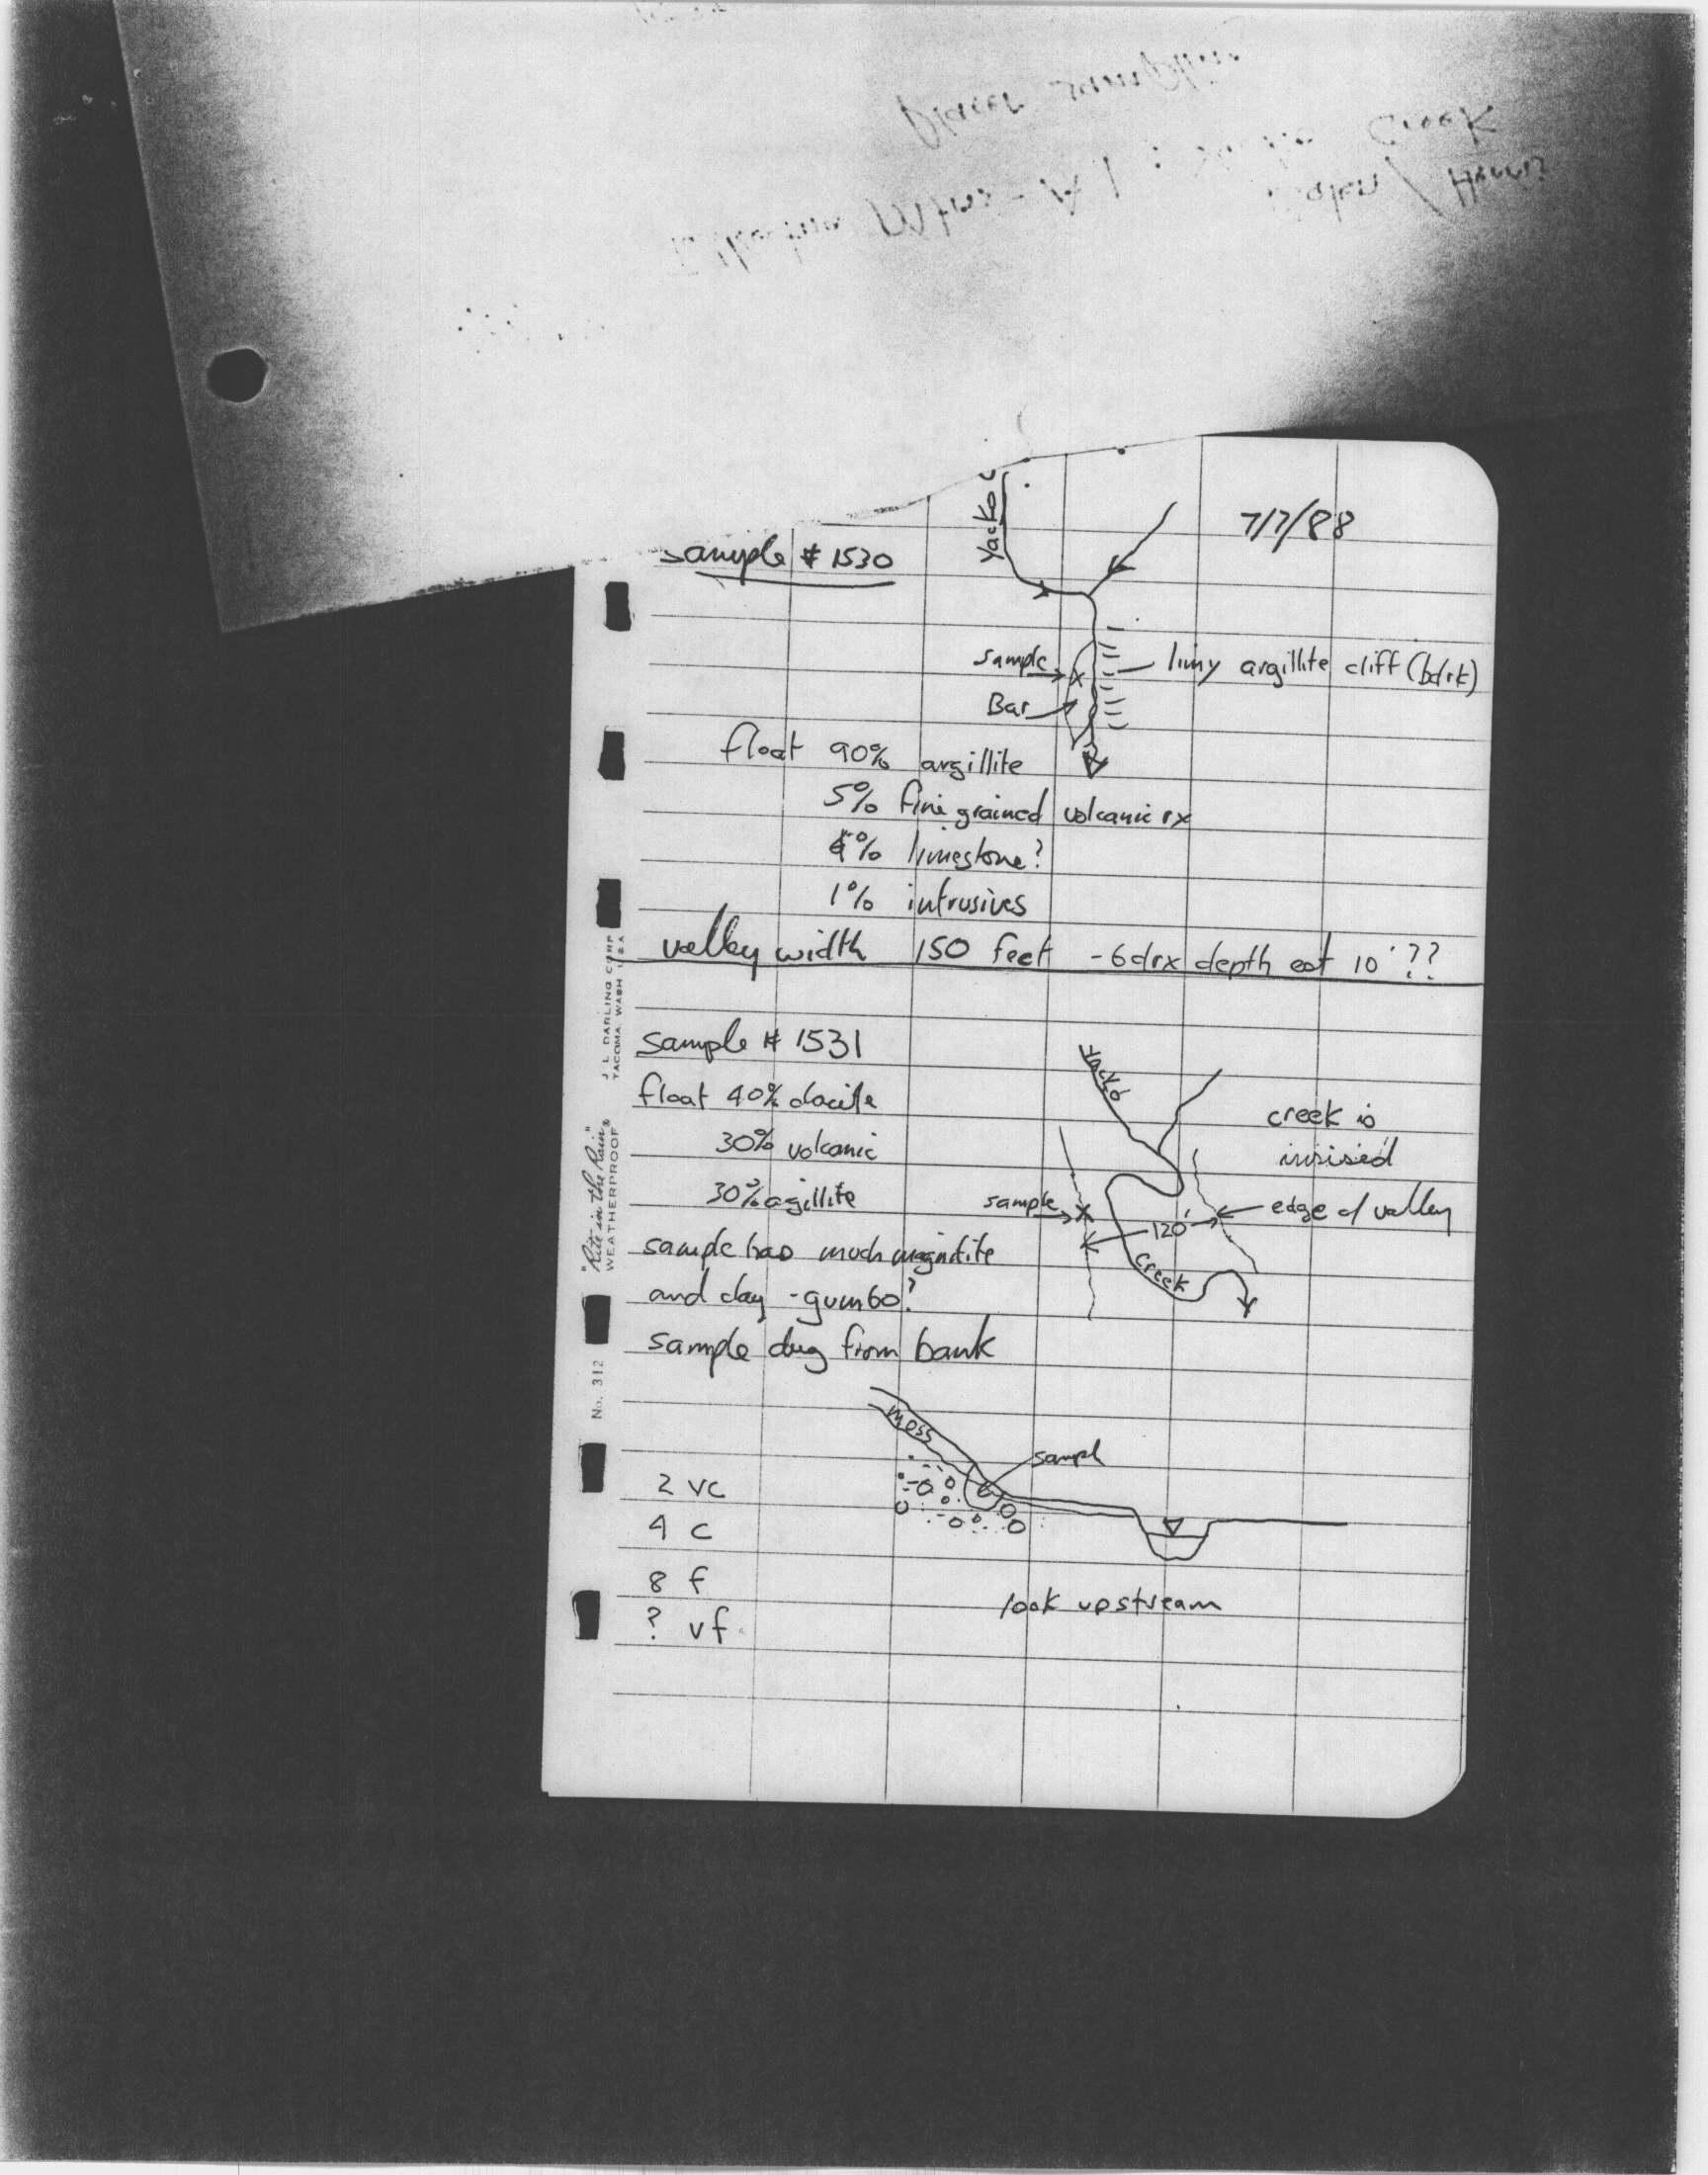 Placer sampling
Creek
Mtns - A1 :
/ Harris
7/7/88
Yacko
sample # 1530
sample
limy argillite cliff (bdrk)
Bar
float 90% argillite
5% fine grained volcanic rx
4% limestone?
1% intrusives
valley width 150 feet - bdrx depth est 10' ??
sample # 1531
Yacko
float 40% dacite
creek is
30% volcanic
insised
30% agillite
sample
120'
edge of valley
sample has much magnitite
creek
and clay - gumbo?
sample dug from bank
moss
sampl
2 vc
4 c
8 f
look upstream
? vf
J. L. DARLING CORP
TACOMA, WASH U.S.A
"Rite in the Rain"®
WEATHERPROOF
No. 312